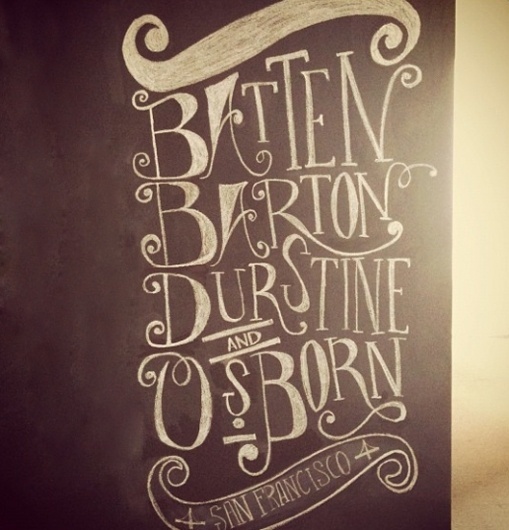 BATTEN
BARTON
DURSTINE
AND
OSBORN
SAN FRANCISCO